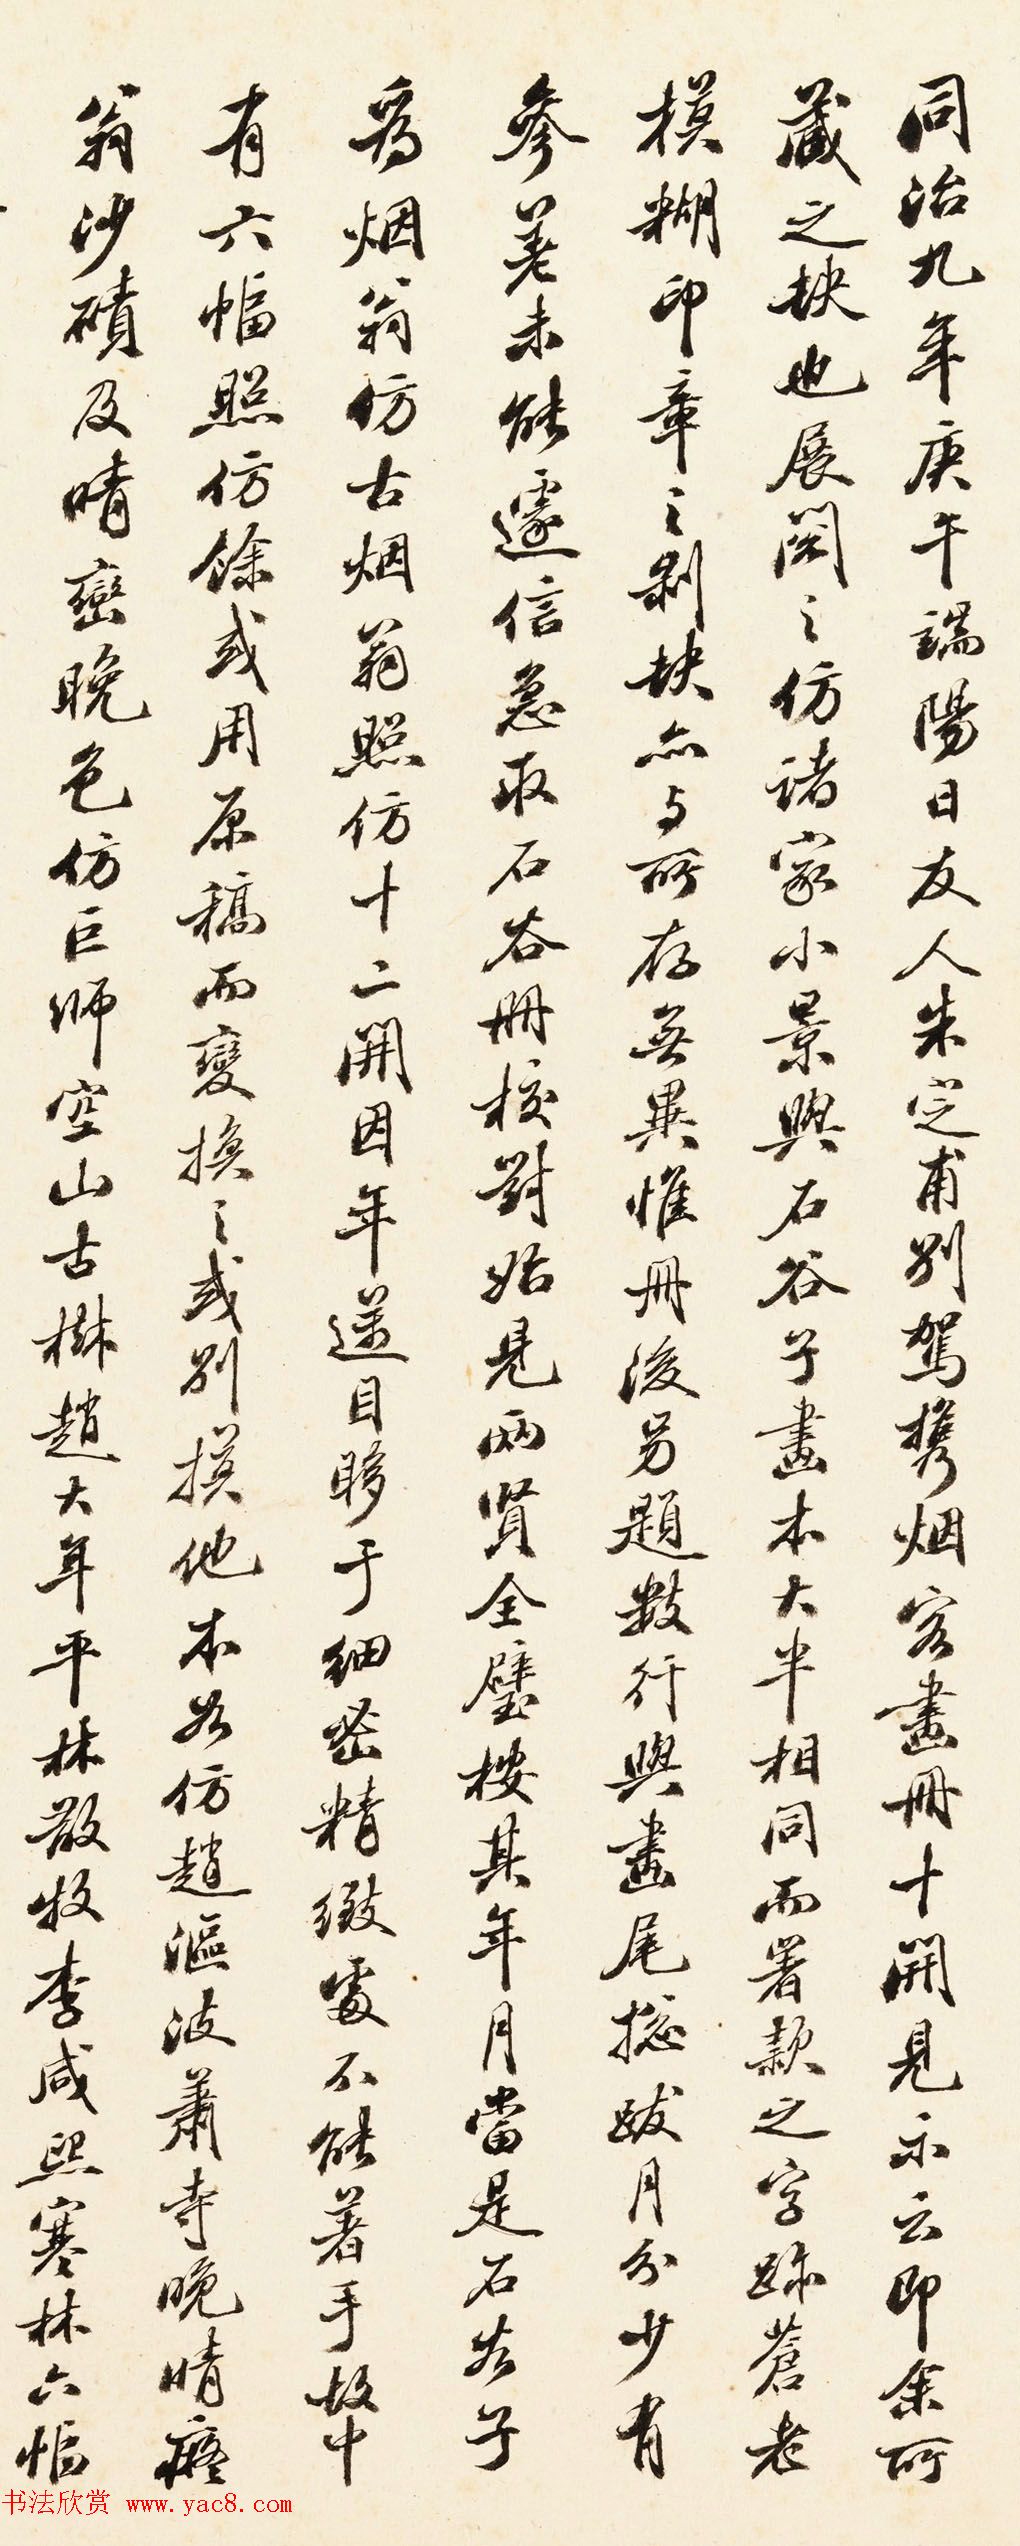 同治九年庚午端陽日友人朱定甫別駕携烟客畫冊十開見示云即余所
藏之缺也展閱之仿諸家小景與石谷子畫本大半相同而署款之字跡蒼老
模糊印章之剝缺亦与所存無異惟冊後另題數行與畫尾總跋月分少有
參差未能遽信急取石谷冊校對始見兩賢全璧按其年月當是石谷子
為烟翁仿古烟翁照仿十二開因年邁目眵于細密精緻處不能著手故中
有六幅照仿餘或用原稿而變換之或別摸他本如仿趙漚波蕭寺晚晴癡
翁沙磧及晴巒晚色仿巨師空山古樹趙大年平林散牧李咸熙寒林六幅
书法欣赏 www.yac8.com